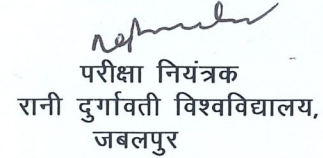 परीक्षा नियंत्रक
रानी दुर्गावती विश्वविद्यालय,
जबलपुर